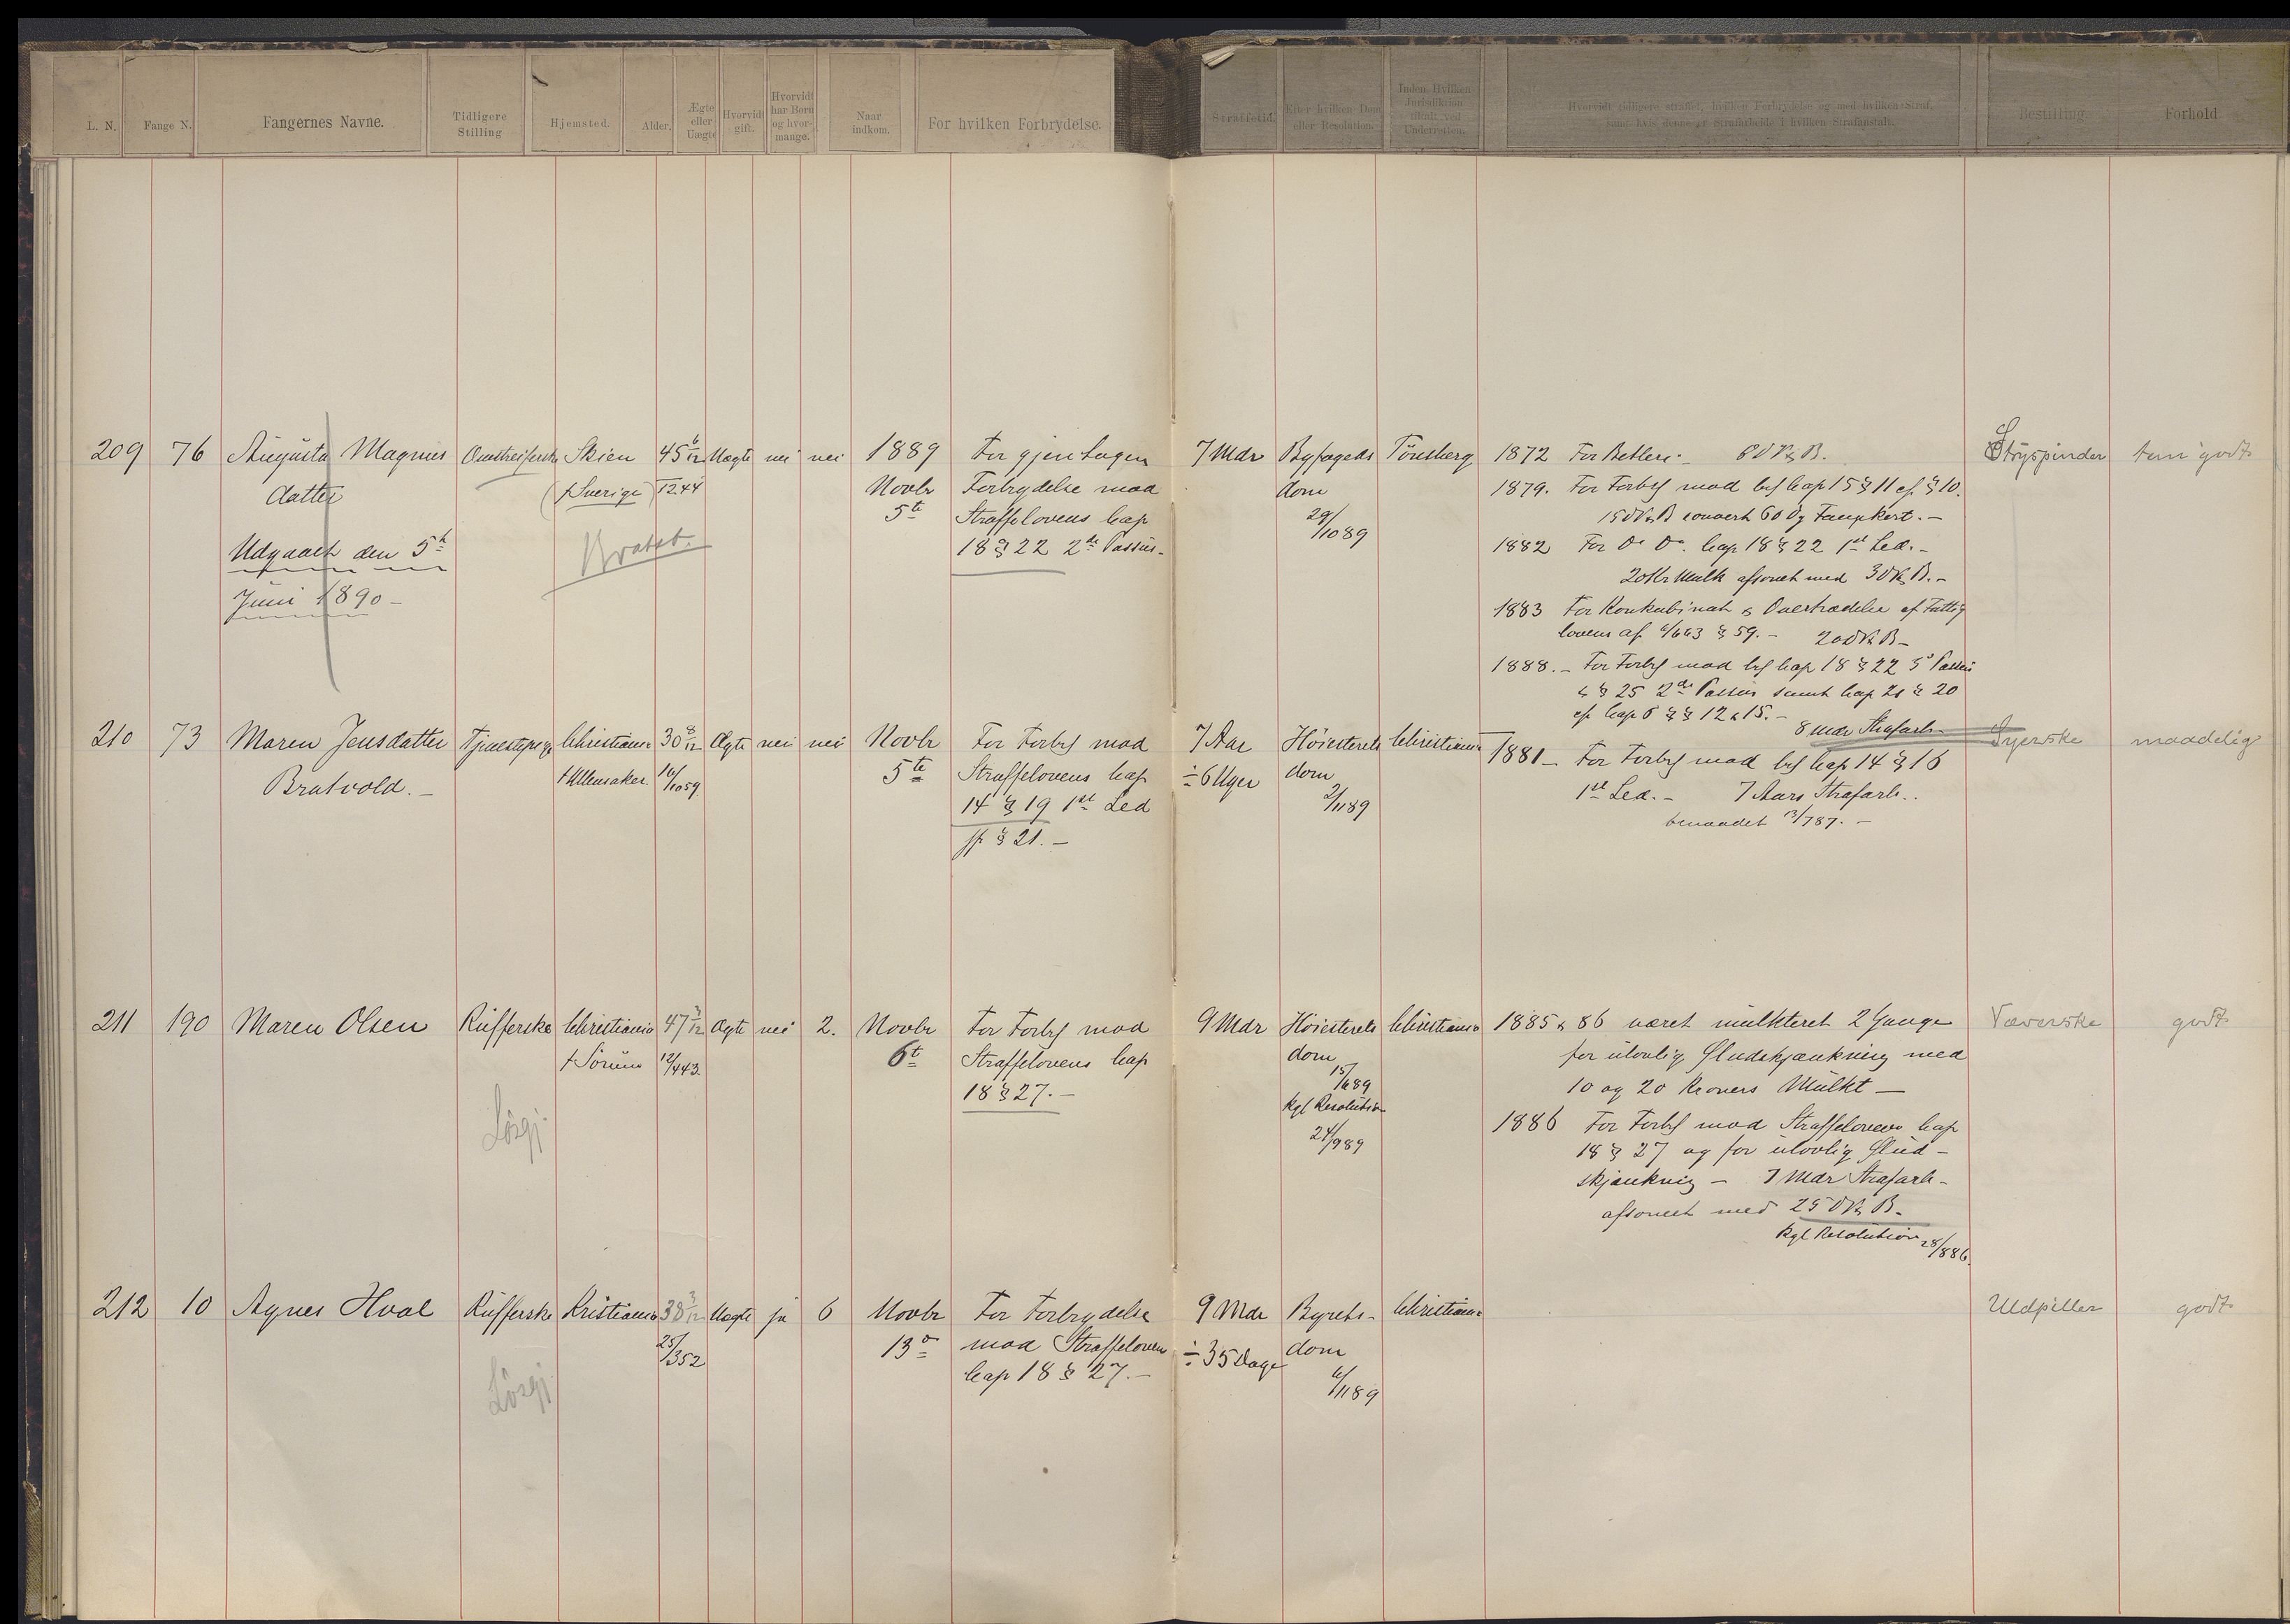 L. N.
Fange N.
Fangernes Navne.
Tidligere
Stilling
Hjemsted.
Alder.
Ægte
eller
Uægte
Hvorvidt
gift.
Hvorvidt
har Børn
og hvor-
mange.
Naar
indkom.
For hvilken Forbrydelse.
Straffetid.
Efter hvilken Dom
eller Resolution.
Inden Hvilken
Jurisdiktion
tiltalt ved
Underretten.
Hvorvidt tidligere straffet, hvilken Forbrydelse og med hvilken Straf,
samt hvis denne er Strafarbeide i hvilken Strafanstalt.
Bestilling
Forhold
209
76
Augusta Magnus
datter
Udgaaet den 5te
Juni 1890 –
Omstreiferske
Skien
(f Sverige)
45 6/12
12.44
Uægte
nei
nei
1889
Novbr
5te
For gjentagen
Forbrydelse mod
Straffelovens Cap
18 § 22 2de Passus –
7 Mdr
Byfogeds
dom
29/10 89
Tönsberg
1872 For Betleri – 8 D V & B.
1879. For Forbr mod lov Cap 15 § 11 cf. § 10.
15 D V & B convert 60 Dg Fængkost. –
1882 For Do Do. Cap 18 § 22 1st Led. –
20 Kr Mulkt afsonet med 3 D V & B. –
1883 For Konkubinat & Overtrædelse af Fattig
lovens af 6/6 63 § 59. – 20 D V & B –
1888. – For Forbr mod lov Cap 18 § 22 3' Passus
& § 25 2de Passus samt Cap 21 § 20
cf Cap 6 §§ 12 & 15. –
8 Mdr Strafarb –
Stryspinder
tem godt
210
73
Maren Jensdatter
Bratvold. –
Tjenestepige
Christiania
f Ullensaker.
30 8/12
16/10 59
Ægte
nei
nei
Novbr
5te
For Forbr mod
Straffelovens Cap
14 § 19 1ste Led
jf § 21. –
7 Aar
÷ 6 Uger
Höiesterets
dom
2/11 89
Christiania
1881 – For Forbr mod lov Cap 14 § 16
1ste Led. – 7 Aars Strafarb..
benaadet 13/7 87. –
Syerske
maadelig
211
190
Maren Olsen
Rufferske
Christiania
f Sörum
47 3/12
12/4 43.
Ægte
nei
2.
Novbr
6te
For Forbr mod
Straffelovens Cap
18 § 27. –
9 Mdr
Höiesterets
dom
15/6 89
Kgl Resolution
24/9 89
Christiania
1885 & 86 været mulkteret 2 Gange
for ulovlig Öludskjænkning med
10 og 20 Kroners Mulkt –
1886 For Forbr mod Straffelovens Cap
18 § 27 og for ulovlig Ölud –
skjænkning – 7 Mdr Strafarb –
afsonet med 25 D V & B.
Kgl Resolution 28/8 86.
Væverske
godt
Lösgj.
212
10
Agnes Hval
Rufferske
Kristiania
38 3/12
25/3 52
Uægte
ja
6
Novbr
13de
For Forbrydelse
mod Straffelovens
Cap 18 § 27. –
9 Mdr
÷ 35 Dage
Byrets –
dom
6/11 89
Christiania
Uldpiller
godt
Lösgj.